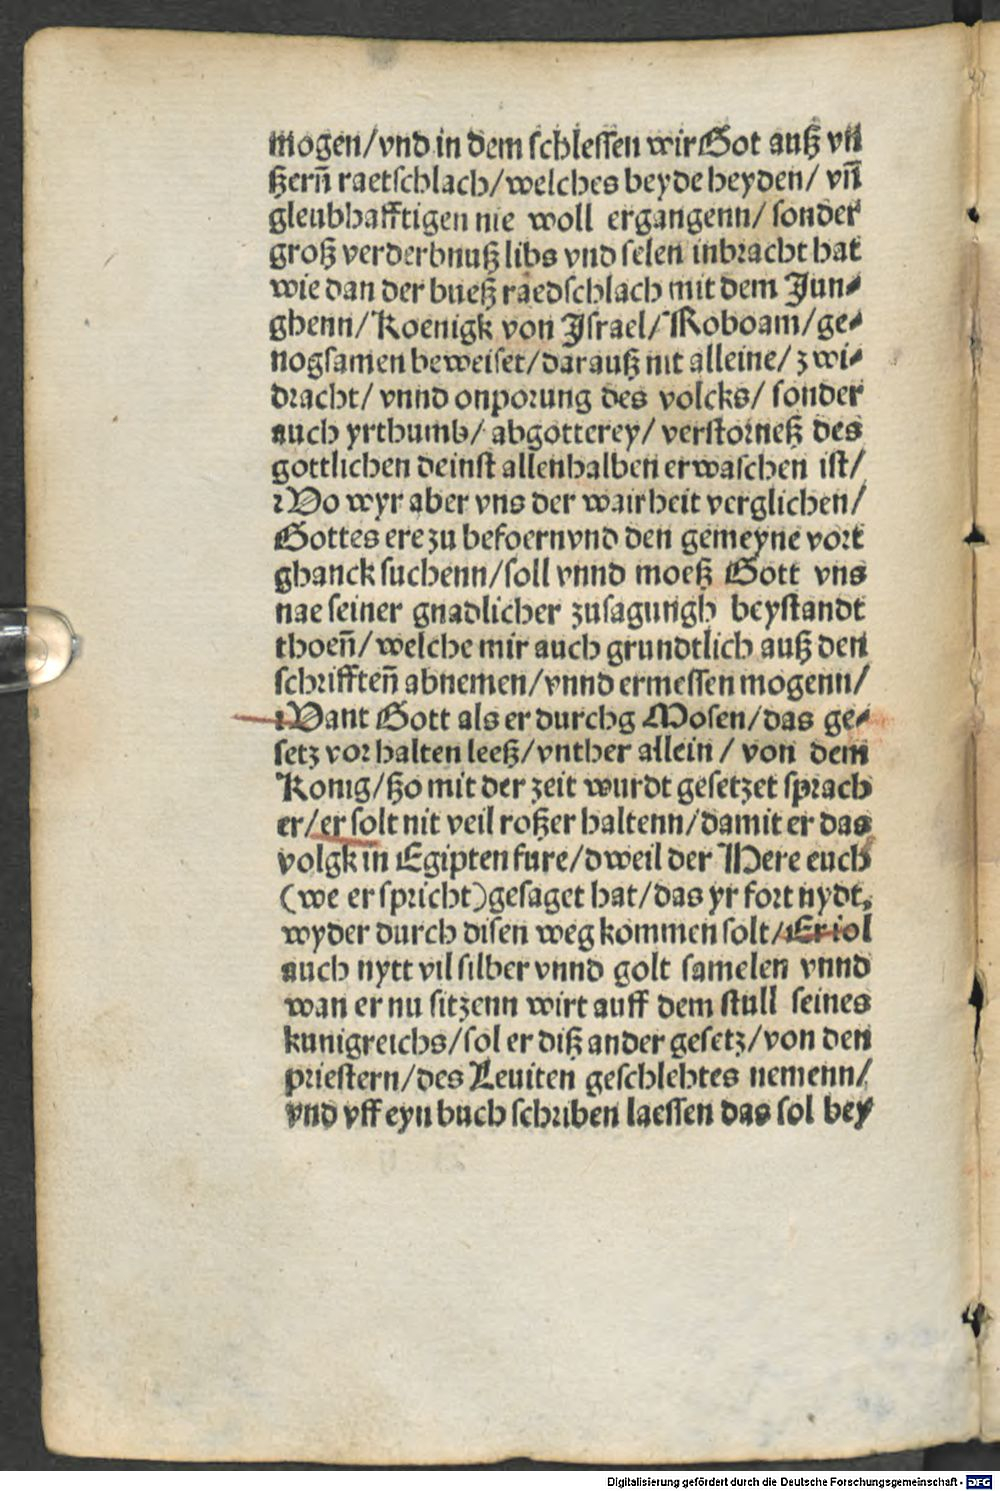 mogen/vnd in dem schlessen wir Got auß vn
ßern̄ raetschlach/welches beyde heyden/ vn̄
gleubhafftigen nie woll ergangenn/ sonder
groß verderbnuß libs vnd selen inbracht hat
wie dan der bueß raedschlach mit dem Jun⸗
ghenn/Koenigk von Jsrael/Roboam/ge⸗
nogsamen beweiset/darauß nit alleine/zwi⸗
dracht/ vnnd onporung des volcks/ sonder
auch yrthumb/ abgotterey/ verstorneß des
gottlichen deinst allenhalben erwaschen ist/
Wo wyr aber vns der wairheit verglichen/
Gottes ere zu befoern vnd den gemeyne vort
ghanck suchenn/soll vnnd moeß Gott vns
nae seiner gnadlicher zusagungh beystandt
thoen̄/welche mir auch grundtlich auß den
schrifften̄ abnemen/vnnd ermessen mogenn/
Want Gott als er durchg Mosen/das ge⸗
setz vorhalten leeß/vnther allein/ von dem
Konig/ßo mit der zeit wurdt gesetzet sprach
er/er solt nit veil roßer haltenn/damit er das
volgk in Egipten fure/dweil der Here euch
(we er spricht)gesaget hat/das yr fort nydt
wyder durch disen weg kommen solt/Er sol
auch nytt vil silber vnnd golt samelen vnnd
wan er nu sitzenn wirt auff dem stull seines
kunigreichs/sol er diß ander gesetz/von den
priestern/des Leuiten geschlehtes nemenn/
vnd vff eyn buch schriben laessen das sol bey
Digitalisierung gefördert durch die Deutsche Forschungsgemeinschaft - DFG